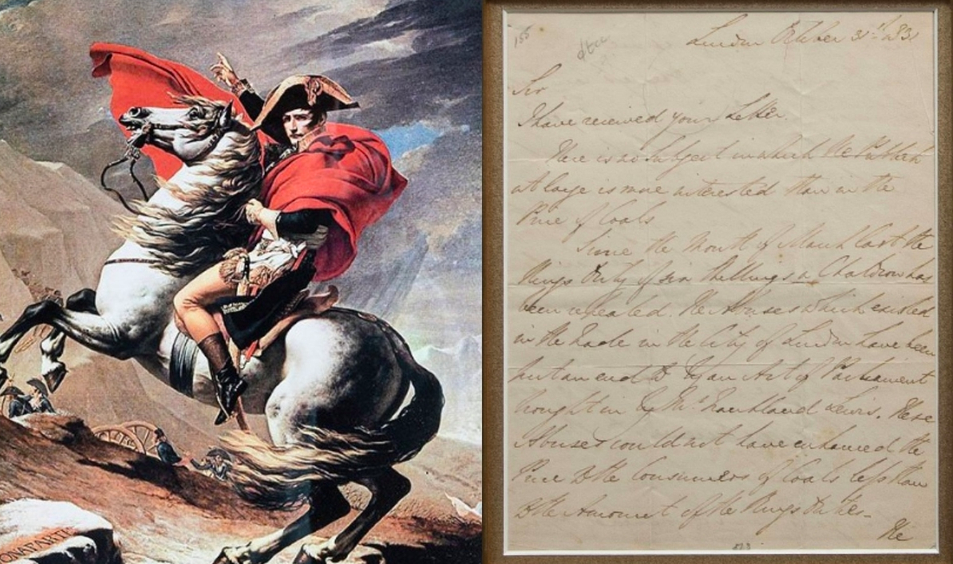 ONAPARTE
155
London October 31st 1831
Sir
I have received your Letter.
There is no subject in which the Publick
at large is more interested than in the
Price of Coals
Since the Month of March last the
Kings Duty of six shillings a Chaldron has
been repealed. The Abuses which existed
in the Trade in the City of London have been
put an end to by an Act of Parliament
brought in by Mr. Frankland Lewis. These
Abuses could not have enhanced the
Price to the Consumers of Coals less than
to the Amount of the Kings Duties.
The